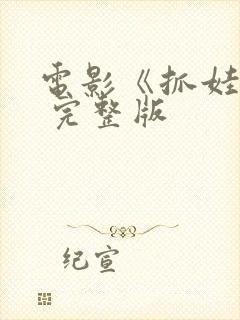 電影《抓娃
完整版
纪宣